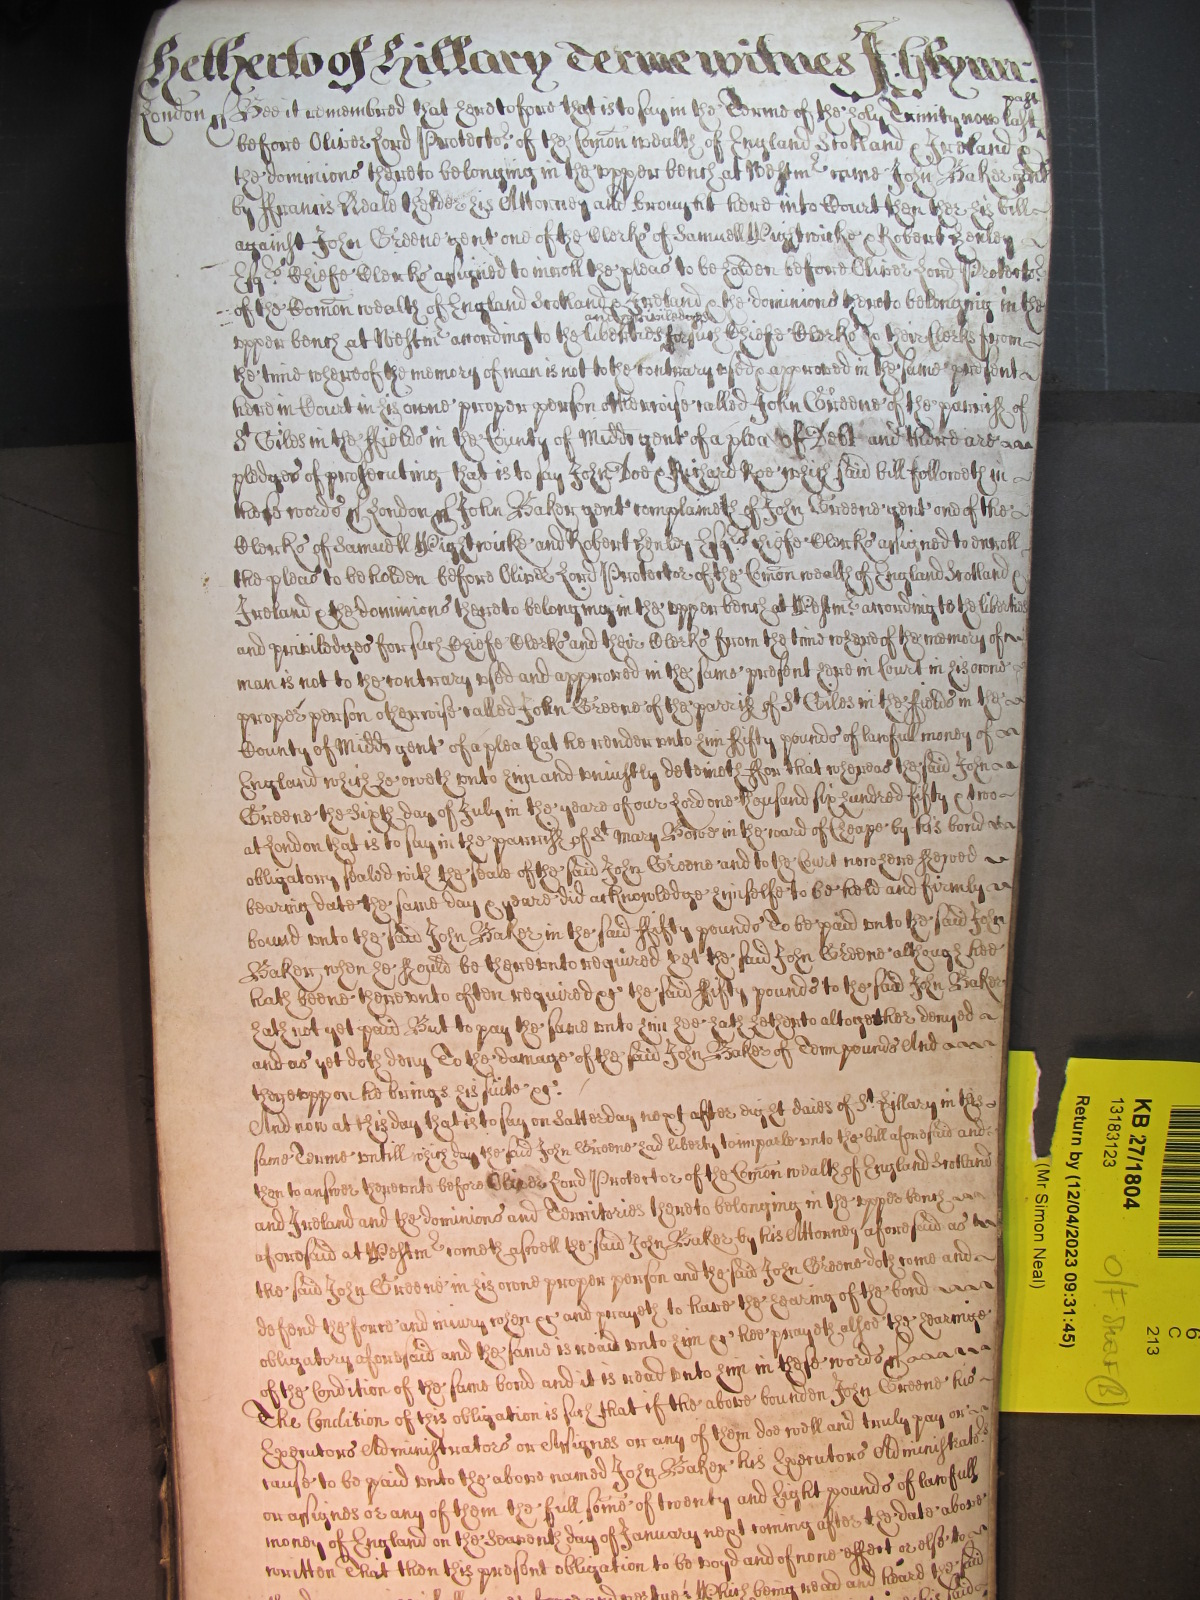 Hetherto of Hillary Terme witnes J: Glynn:
London ss Bee it remembred that heretofore that is to say in the Terme of the holy Trinity now last past
before Oliver Lord Protector of the Comon wealth of England Scotland & Ireland &
the dominions thereto belonging in the upper bench at Westmr came John Baker gent
by Francis Neale his Attorney and brought here into Court then ther his bill
against John Greene gent one of the Clerks of Samuell Wightwicke & Robert Henley
Esqrs Chiefe Clerks assigned to inroll the pleas to be holden before Oliver Lord Protector
of the Comon wealth of England Scotland & Ireland & the dominions thereto belonging in the
and priviledges
upper bench at Westmr according to the liberties for such Chiefe Clerks & their Clerks from
the time whereof the memory of man is not to the contrary used & approved in the same present
here in Court in his owne proper person otherwise called John Greene of the parrish of
St Giles in the ffields in the County of Midd gent of a plea of Debt and there are
pledges of prosecuting that is to say John Doe & Richard Roe which said bill followeth in
these words ss London ss John Baker gent complaineth of John Greene gent one of the
Clerks of Samuell Wightwicke and Robert Henley Esqrs chiefe Clerks assigned to enroll
the pleas to be holden before Oliver Lord Protector of the Comon wealth of England Scotland
Ireland & the dominions thereto belonging in the upper bench at Westmr according to the liberties
and priviledges for such Chiefe Clerks and their Clerks from the time whereof the memory of
man is not to the contrary used and approved in the same present here in Court in his owne
proper person otherwise called John Greene of the parrish of St Giles in the ffields in the
County of Midd gent of a plea that he render unto him ffifty pounds of lawfull money of
England which he oweth unto him and uniustly deteineth ffor that whereas the said John
Greene the Sixth day of July in the yeare of our Lord one thousand six hundred fifty & two
at London that is to say in the parrish of St Mary Bowe in the ward of Cheape by his bond
obligatory sealed with the seale of the said John Greene and to the Court now here shewed
bearing date the same day & yeare did acknowledge himselfe to be held and firmly
bound unto the said John Baker in the said ffifty pounds To be paid unto the said John
Baker when he should be thereunto required yet the said John Greene although hee
hath beene thereunto often required &c the said ffifty pounds to the said John Baker
hath not yet paid But to pay the same unto him hee hath hetherto altogether denyed
and as yet doth deny To the damage of the said John Baker of Tenn pounds And
thereuppon he brings his suite &c:
And now at this day that is to say on Satterday next after eight daies of St Hillary in this
same Terme untill which day the said John Greene had liberty to imparle unto the bill aforesaid and
then to answer thereunto before Oliver Lord Protector of the Comon wealth of England Scotland
and Ireland and the dominions and Territories thereto belonging in the upper bench
aforesaid at Westmr cometh aswell the said John Baker by his Attorney aforesaid as
the said John Greene in his owne proper person and the said John Greene doth come and
defend the force and iniury when &c and prayeth to have the hearing of the bond
obligatory aforesaid and the same is read unto him &c hee prayeth alsoe the hearinge
of the Condition of the same bond and it is read unto him in these words ss
The Condition of this obligation is such that if the above bounden John Greene his
Executors Administrators or Assignes or any of them doe well and truly pay or
cause to be paid unto the above named John Baker his Executors Administrators
or assignes or any of them the full some of twenty and Eight pounds of lawfull
money of England on the Seaventh day of January next coming after the date above
written That then this present obligation to be voyd and of none effect or else to
Which being read and heard the said
KB 27/1804
13183123
Return by (12/04/2023 09:31:45)
(Mr Simon Neal)
6
C
213